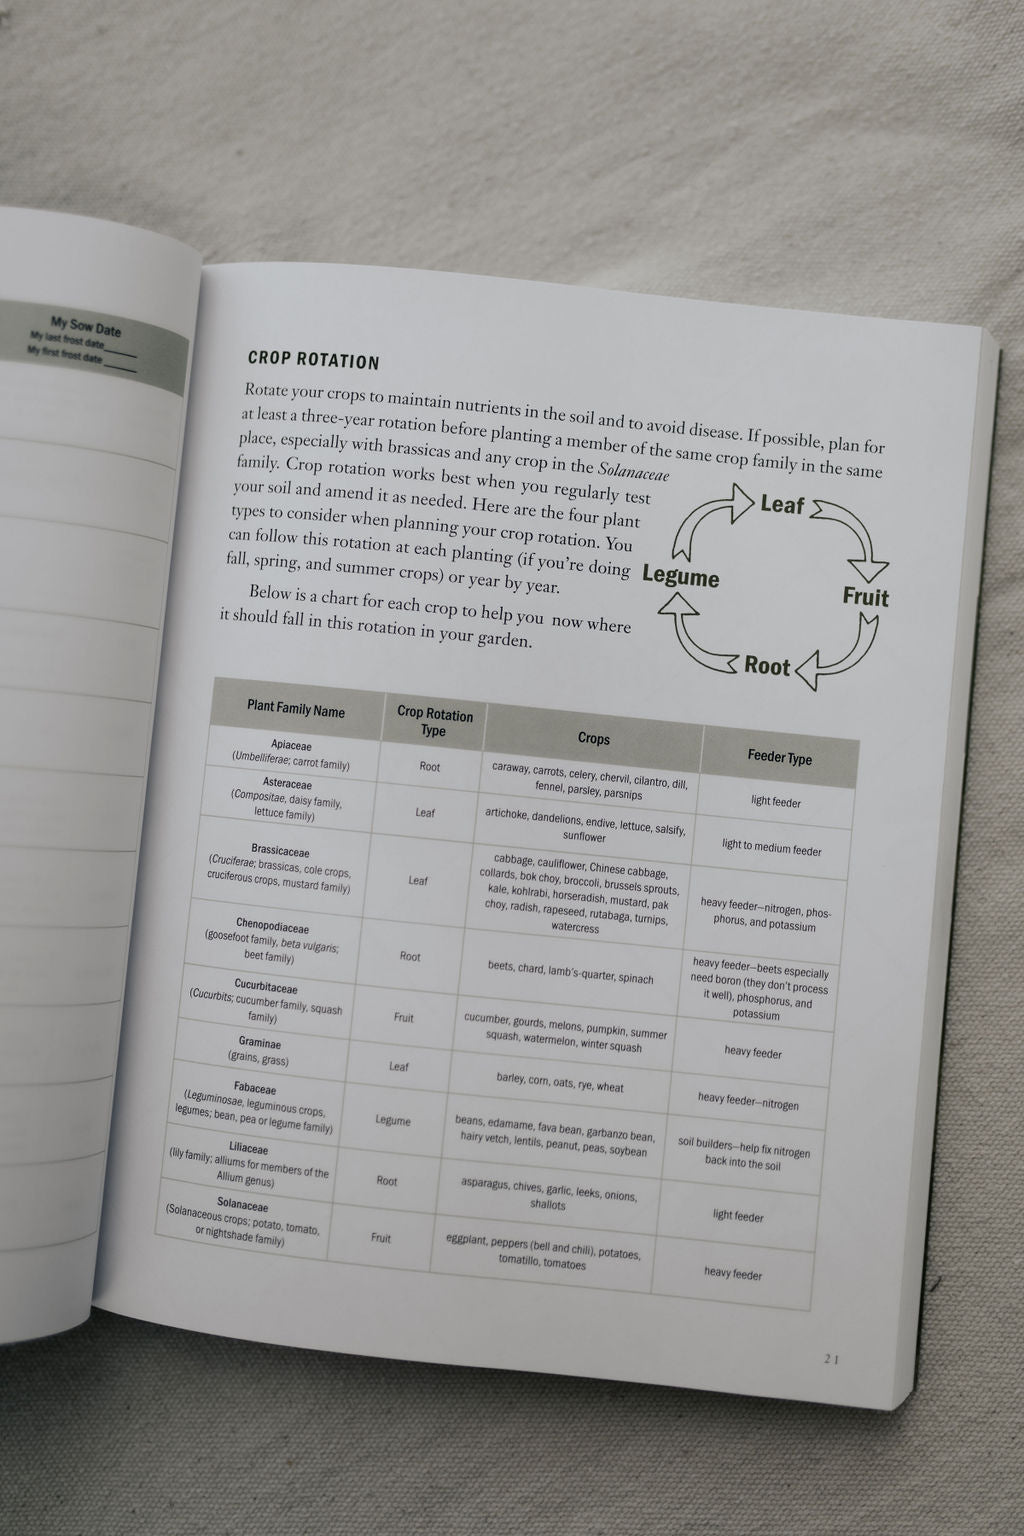 My Sow Date
My last frost date______
My first frost date ______
CROP ROTATION
Rotate your crops to maintain nutrients in the soil and to avoid disease. If possible, plan for
at least a three-year rotation before planting a member of the same crop family in the same
place, especially with brassicas and any crop in the Solanaceae
family. Crop rotation works best when you regularly test
your soil and amend it as needed. Here are the four plant
types to consider when planning your crop rotation. You
can follow this rotation at each planting (if you're doing
fall, spring, and summer crops) or year by year.
Below is a chart for each crop to help you now where
it should fall in this rotation in your garden.
Leaf
Fruit
Root
Legume
Plant Family Name
Crop Rotation
Type
Crops
Feeder Type
Apiaceae
(Umbelliferae; carrot family)
Root
caraway, carrots, celery, chervil, cilantro, dill,
fennel, parsley, parsnips
light feeder
Asteraceae
(Compositae, daisy family,
lettuce family)
Leaf
artichoke, dandelions, endive, lettuce, salsify,
sunflower
light to medium feeder
Brassicaceae
(Cruciferae; brassicas, cole crops,
cruciferous crops, mustard family)
Leaf
cabbage, cauliflower, Chinese cabbage,
collards, bok choy, broccoli, brussels sprouts,
kale, kohlrabi, horseradish, mustard, pak
choy, radish, rapeseed, rutabaga, turnips,
watercress
heavy feeder—nitrogen, phos-
phorus, and potassium
Chenopodiaceae
(goosefoot family, beta vulgaris;
beet family)
Root
beets, chard, lamb's-quarter, spinach
heavy feeder—beets especially
need boron (they don't process
it well), phosphorus, and
potassium
Cucurbitaceae
(Cucurbits; cucumber family, squash
family)
Fruit
cucumber, gourds, melons, pumpkin, summer
squash, watermelon, winter squash
heavy feeder
Graminae
(grains, grass)
Leaf
barley, corn, oats, rye, wheat
heavy feeder—nitrogen
Fabaceae
(Leguminosae, leguminous crops,
legumes; bean, pea or legume family)
Legume
beans, edamame, fava bean, garbanzo bean,
hairy vetch, lentils, peanut, peas, soybean
soil builders—help fix nitrogen
back into the soil
Liliaceae
(lily family; alliums for members of the
Allium genus)
Root
asparagus, chives, garlic, leeks, onions,
shallots
light feeder
Solanaceae
(Solanaceous crops; potato, tomato,
or nightshade family)
Fruit
eggplant, peppers (bell and chili), potatoes,
tomatillo, tomatoes
heavy feeder
21